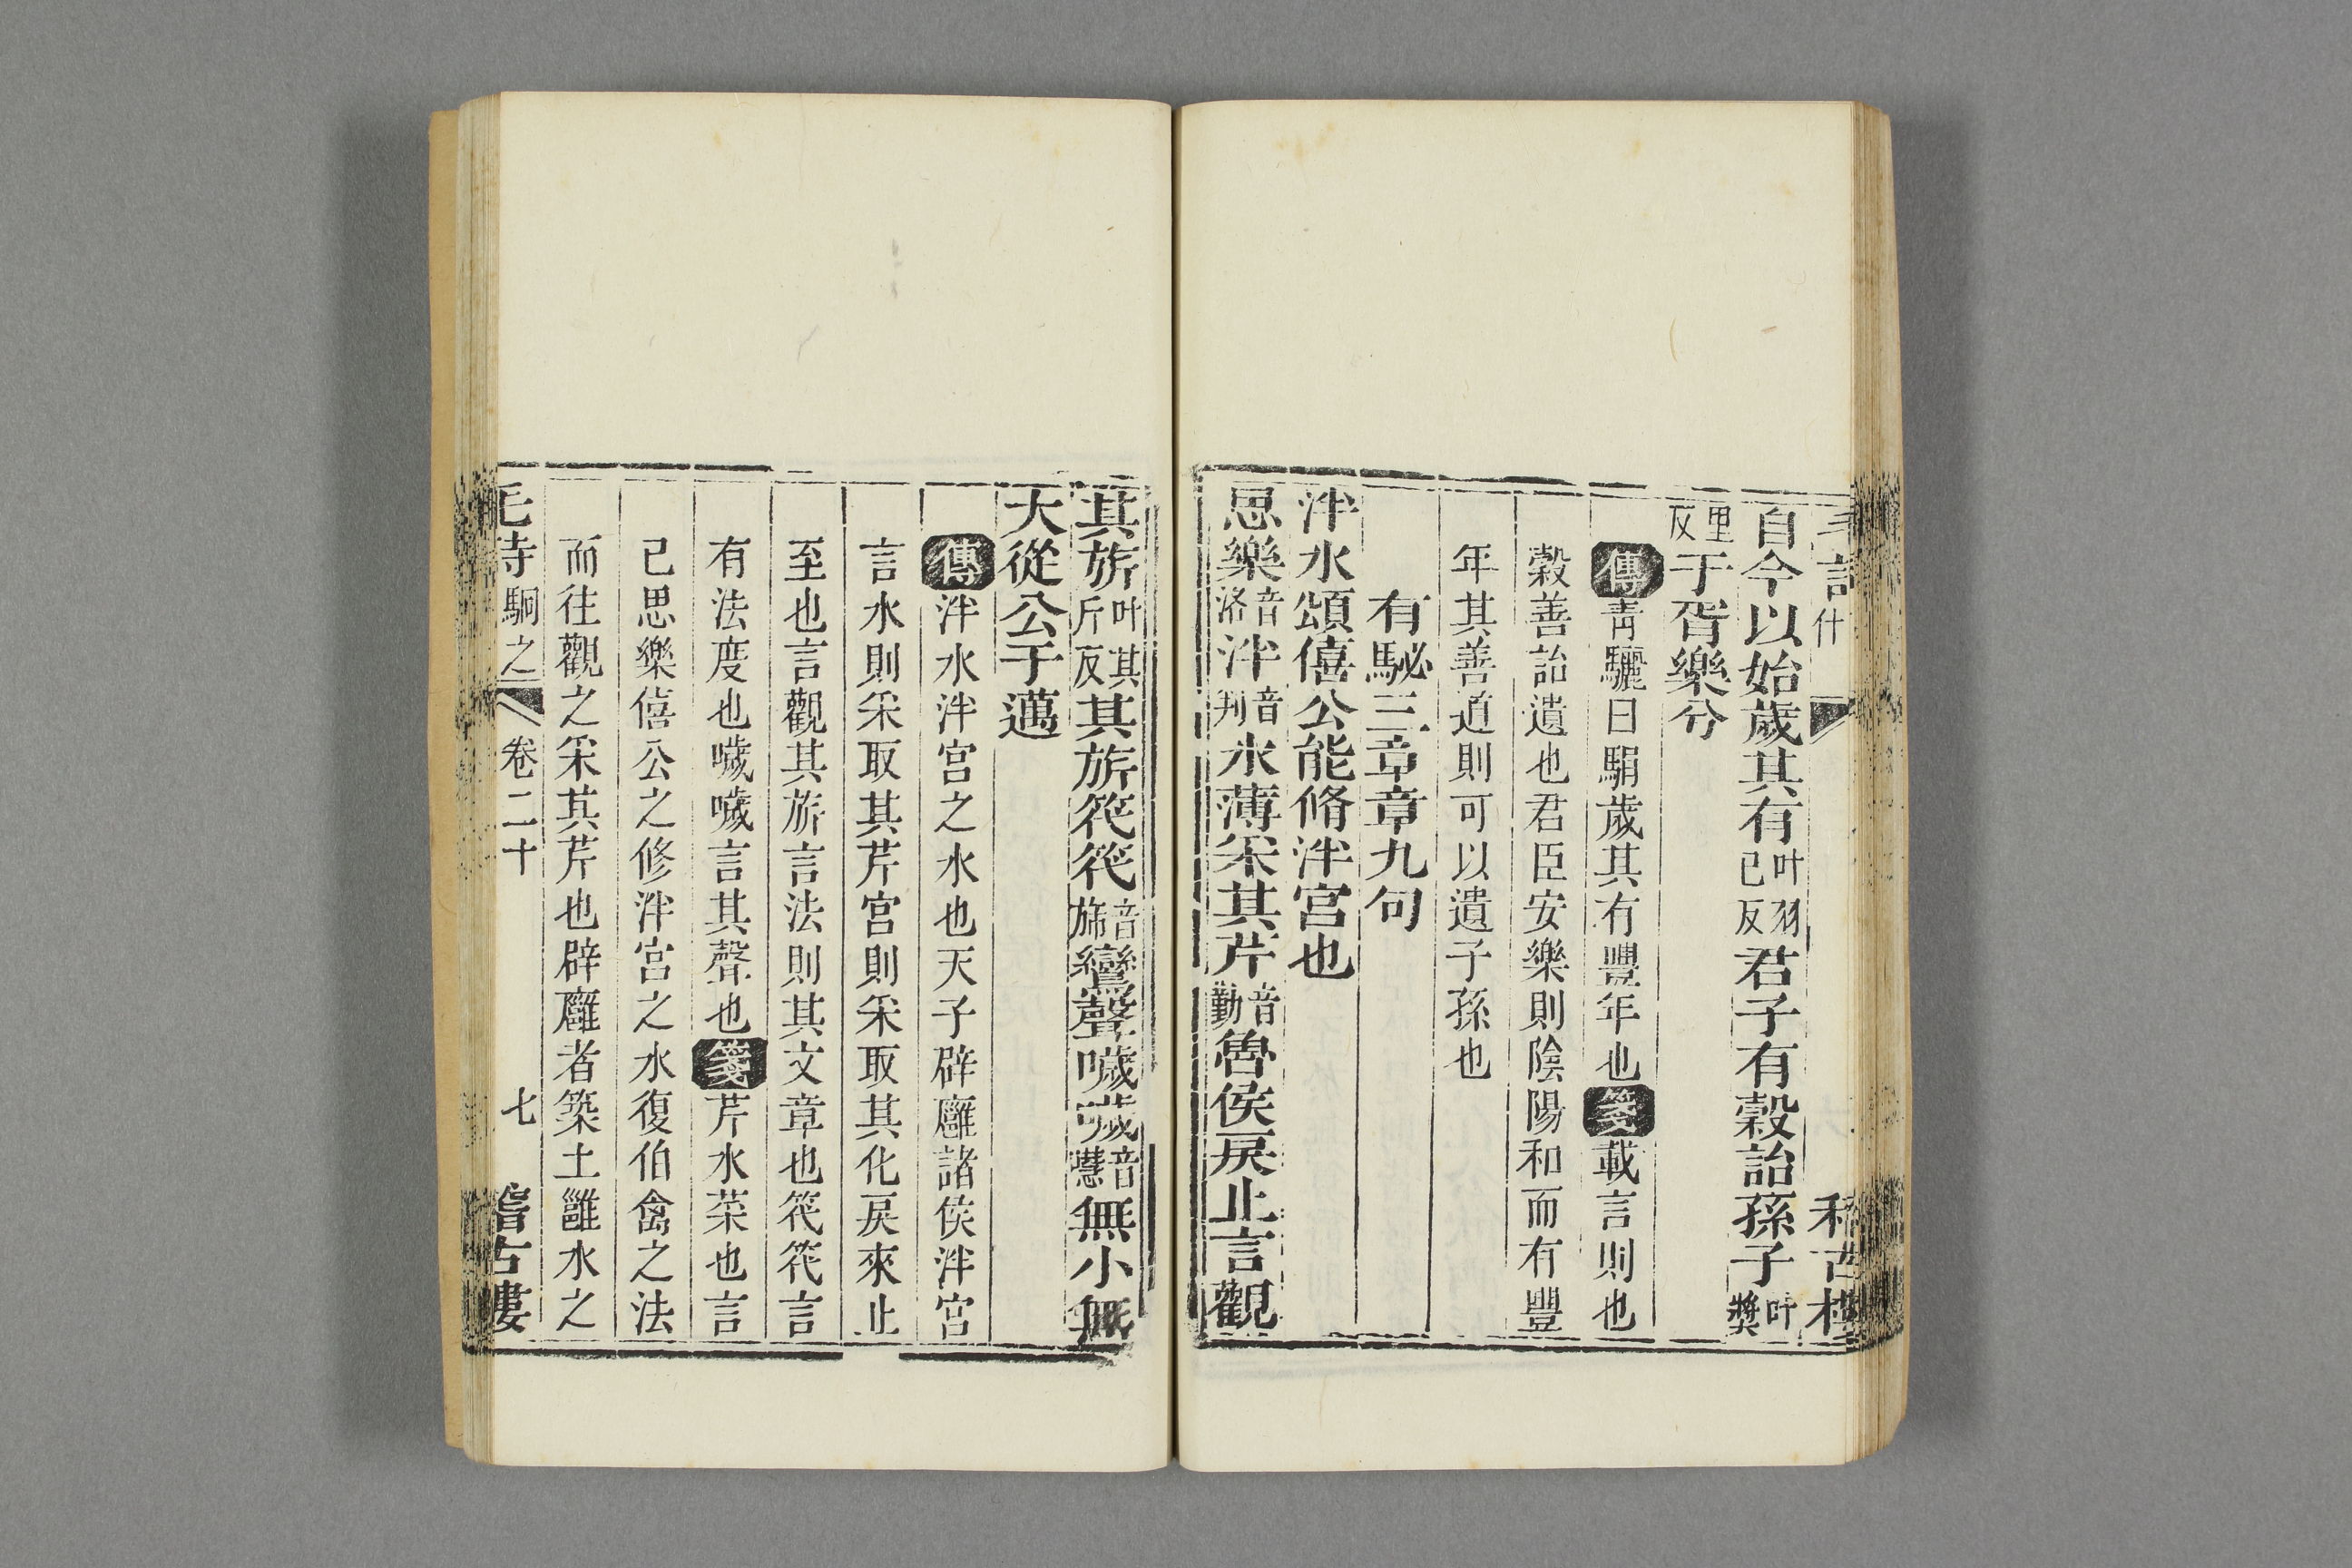 自今以始歲其有叶羽已反君子有穀詒孫子叶奬
里反于胥樂兮
傳青驪曰駽歲其有豐年也箋載言則也
穀善詒遺也君臣安樂則陰陽和而有豐
年其善道則可以遺子孫也
有駜三章章九句
泮水頌僖公能脩泮宮也
思樂音洛泮音判水薄采其芹音勤魯侯戾止言觀
其旂叶其斤反其旂茷茷音旆鸞聲噦噦音嘒無小無
大從公于邁
傳泮水泮宮之水也天子辟廱諸侯泮宮
言水則采取其芹宮則采取其化戾來止
至也言觀其旂言法則其文章也茷茷言
有法度也噦噦言其聲也箋芹水菜也言
已思樂僖公之修泮宮之水復伯禽之法
而往觀之采其芹也辟廱者築土雝水之
毛詩駉之 卷二十 七 稽古樓